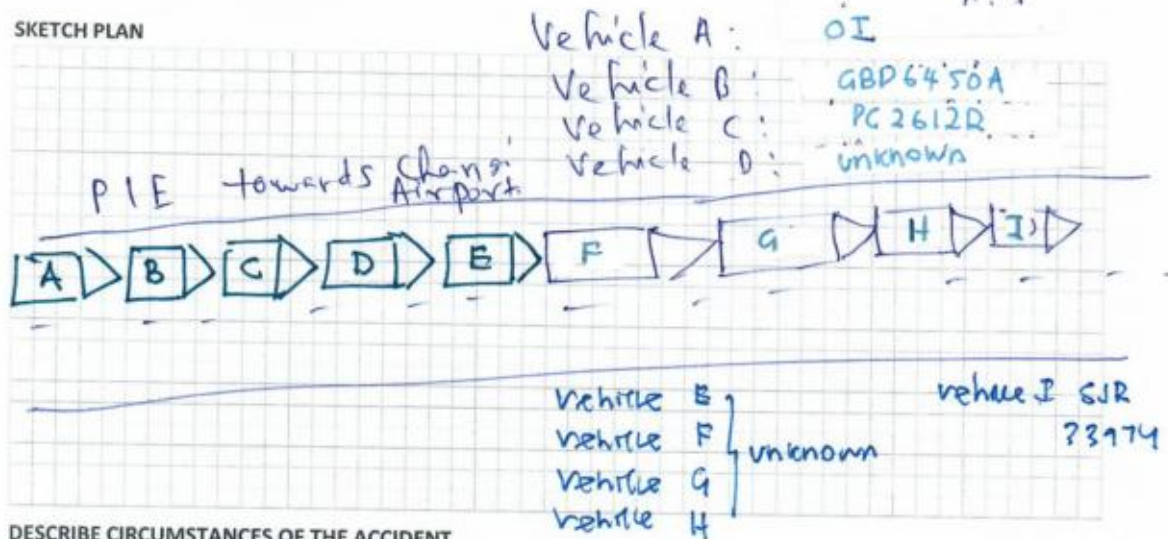 SKETCH PLAN
Vehicle A: OI
Vehicle B: GBD6450A
Vehicle C: PC2612R
Vehicle D: unknown
PIE towards Changi Airport
A B C D E F G H I
Vehicle E
Vehicle F
Vehicle G
Vehicle H
unknown
vehicle I SJR
DESCRIBE CIRCUMSTANCES OF THE ACCIDENT